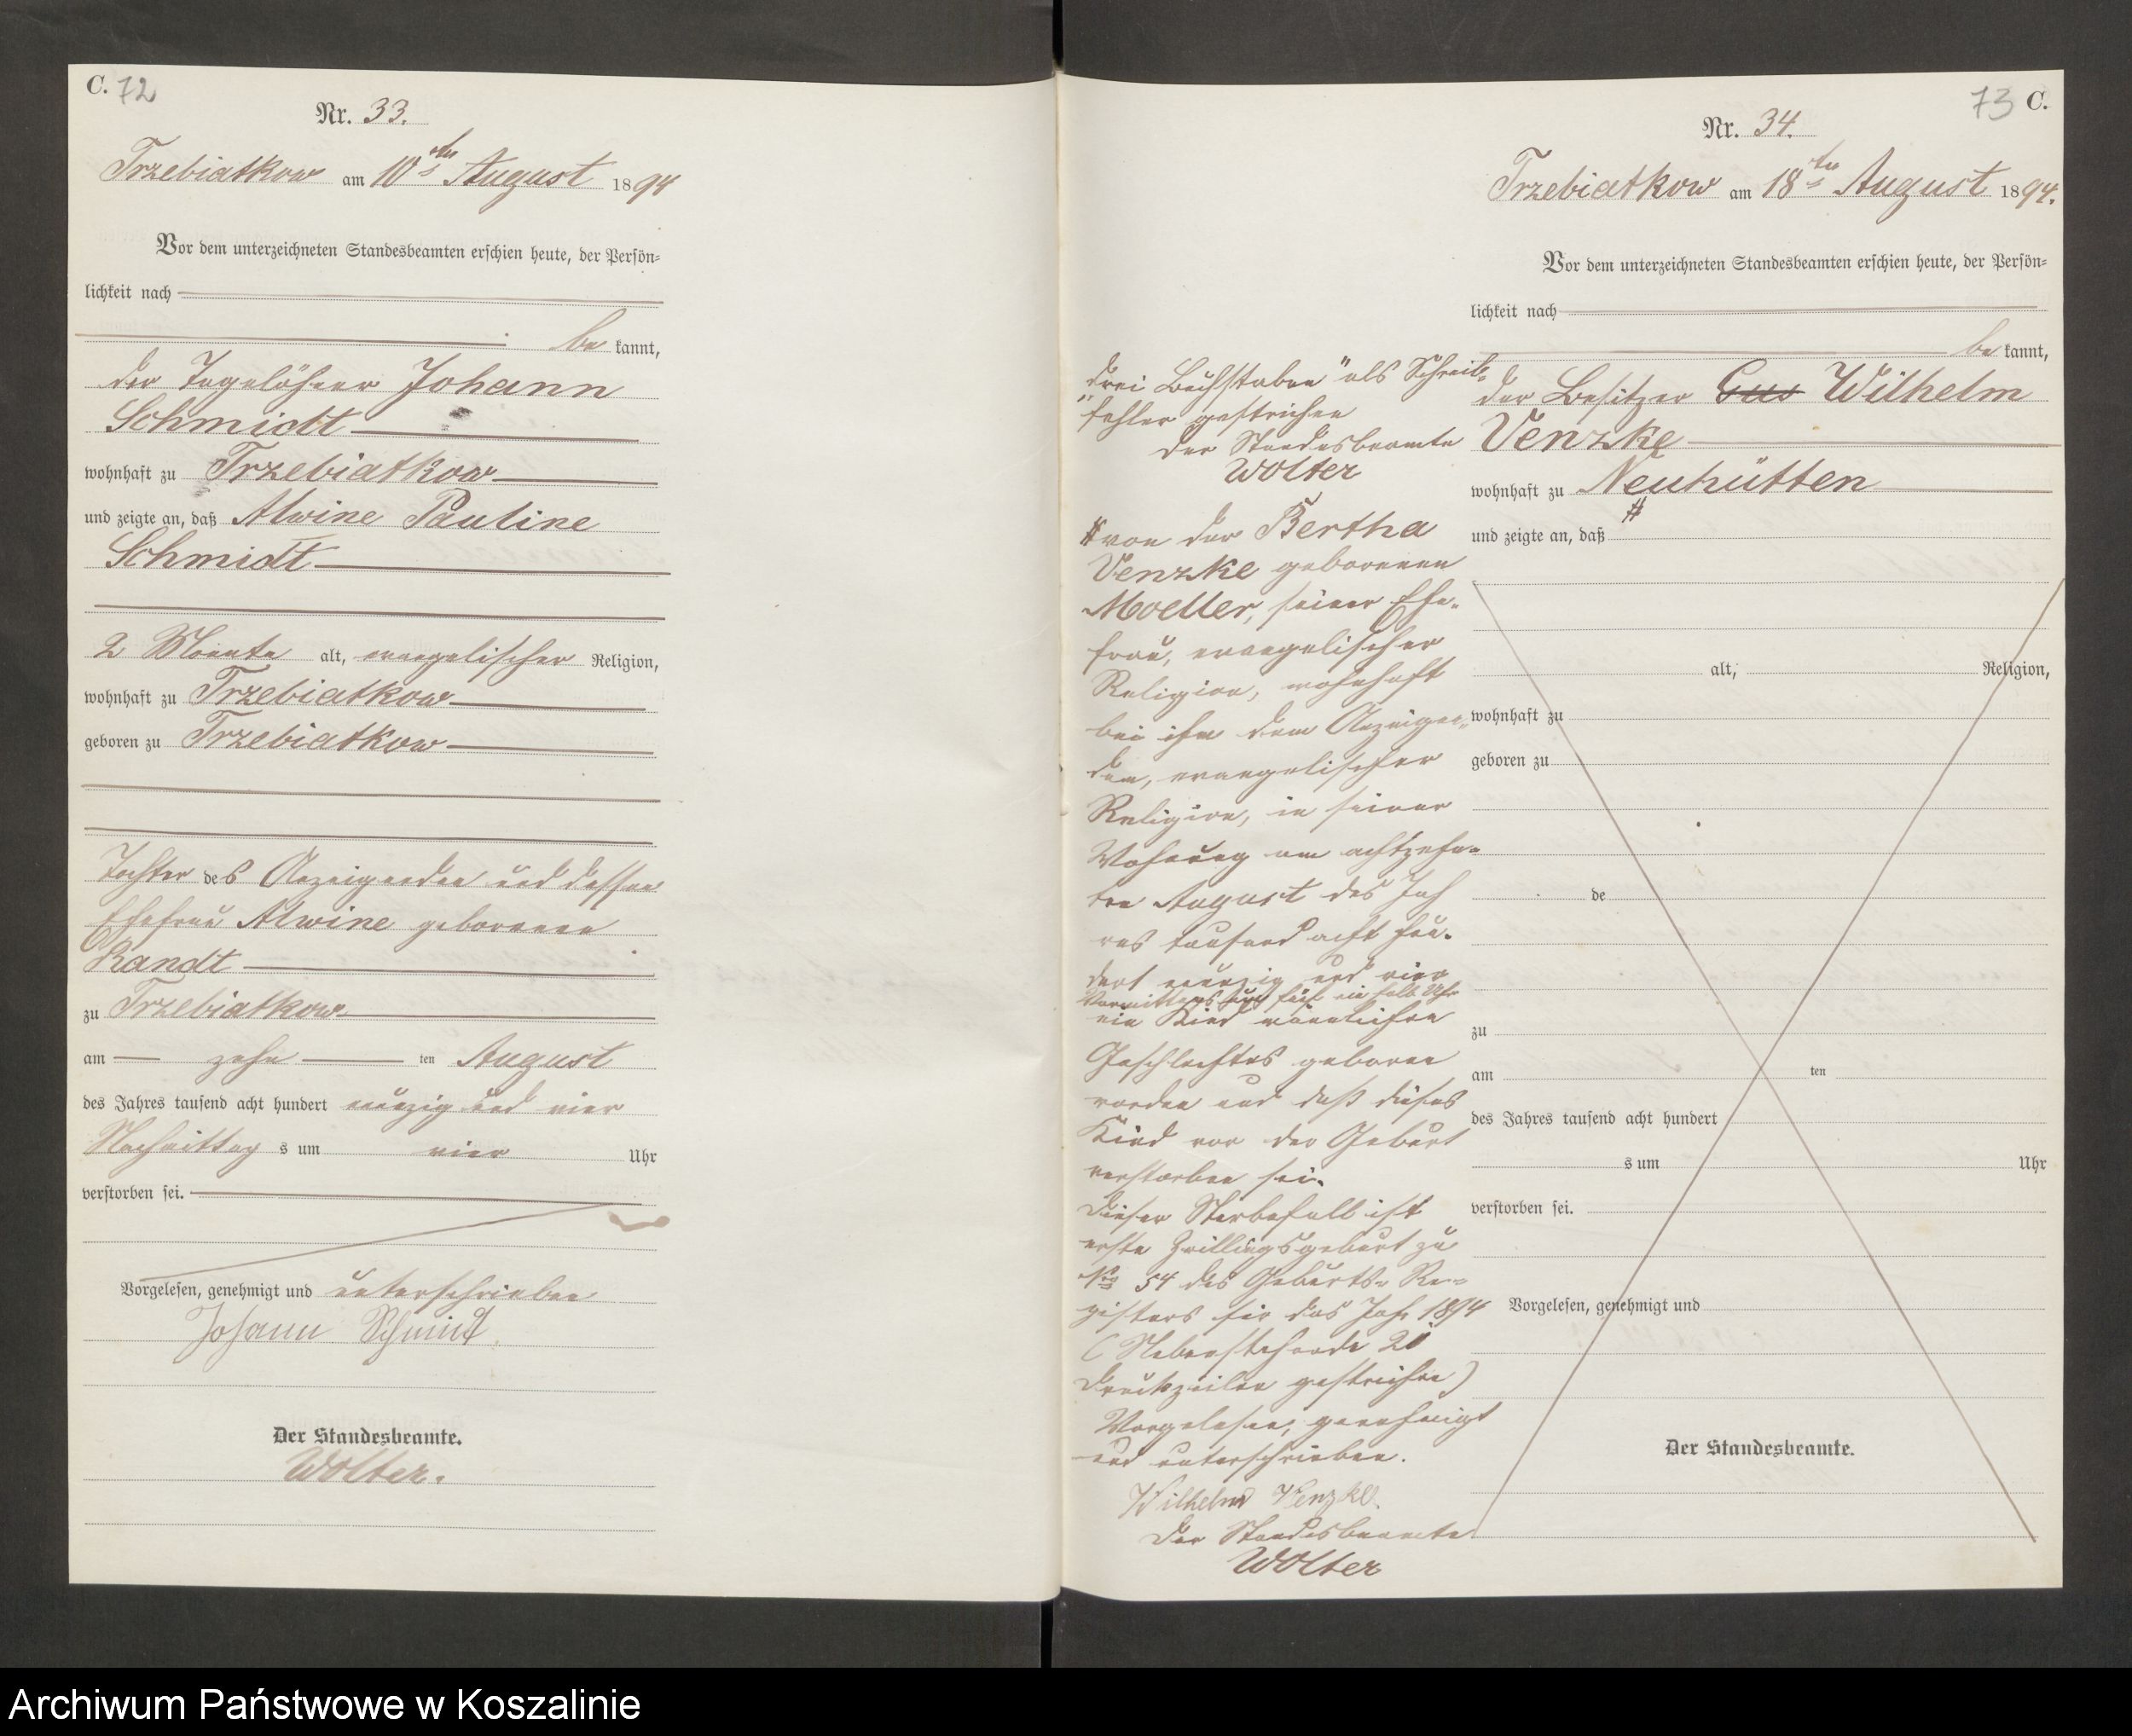 C. 72
Nr. 33.
Trzebiatkow am 10ten August 1894
Vor dem unterzeichneten Standesbeamten erschien heute, der Persön-
lichkeit nach
be kannt,
der Tagelöhner Johann
Schmidt
wohnhaft zu Trzebiatkow
und zeigte an, daß Alwine Pauline
Schmidt
2 Monate alt, evangelischer Religion,
wohnhaft zu Trzebiatkow
geboren zu Trzebiatkow
Tochter des Anzeigenden und dessen
Ehefrau Alwine geborenen
Randt
zu Trzebiatkow
am zehn ten August
des Jahres tausend acht hundert neunzig und vier
Nachmittag s um vier Uhr
verstorben sei.
Vorgelesen, genehmigt und unterschrieben
Johann Schmidt
Der Standesbeamte.
Wolter.
73 C.
Nr. 34.
Trzebiatkow am 18ten August 1894.
Vor dem unterzeichneten Standesbeamten erschien heute, der Persön-
lichkeit nach
be kannt,
der Besitzer Gus Wilhelm
Venzke
wohnhaft zu Neuhütten
und zeigte an, daß #
alt, Religion,
wohnhaft zu
geboren zu
de
zu
am ten
des Jahres tausend acht hundert
s um Uhr
verstorben sei.
Vorgelesen, genehmigt und
Der Standesbeamte.
"drei Buchstaben" als Schreib-
fehler gestrichen
Der Standesbeamte
Wolter
# von der Bertha
Venzke geborenen
Moeller, seiner Ehe-
frau, evangelischer
Religion, wohnhaft
bei ihm dem Anzeigen-
den, evangelischer
Religion, in seiner
Wohnung am achtzehn-
ten August des Jah
res tausend acht hun-
dert neunzig und vier
Vormittags um fünf ein halb Uhr
ein Kind männlichen
Geschlechtes geboren
worden und daß dieses
Kind vor der Geburt
verstorben sei.
Dieser Sterbefall ist
erste Zwillingsgeburt zu
No 54 des Geburts-Re-
gisters für das Jahr 1894
(Nebenstehende 21
Druckzeilen gestrichen)
Vorgelesen, genehmigt
und unterschrieben.
Wilhelm Venzke.
Der Standesbeamte
Wolter
Archiwum Państwowe w Koszalinie